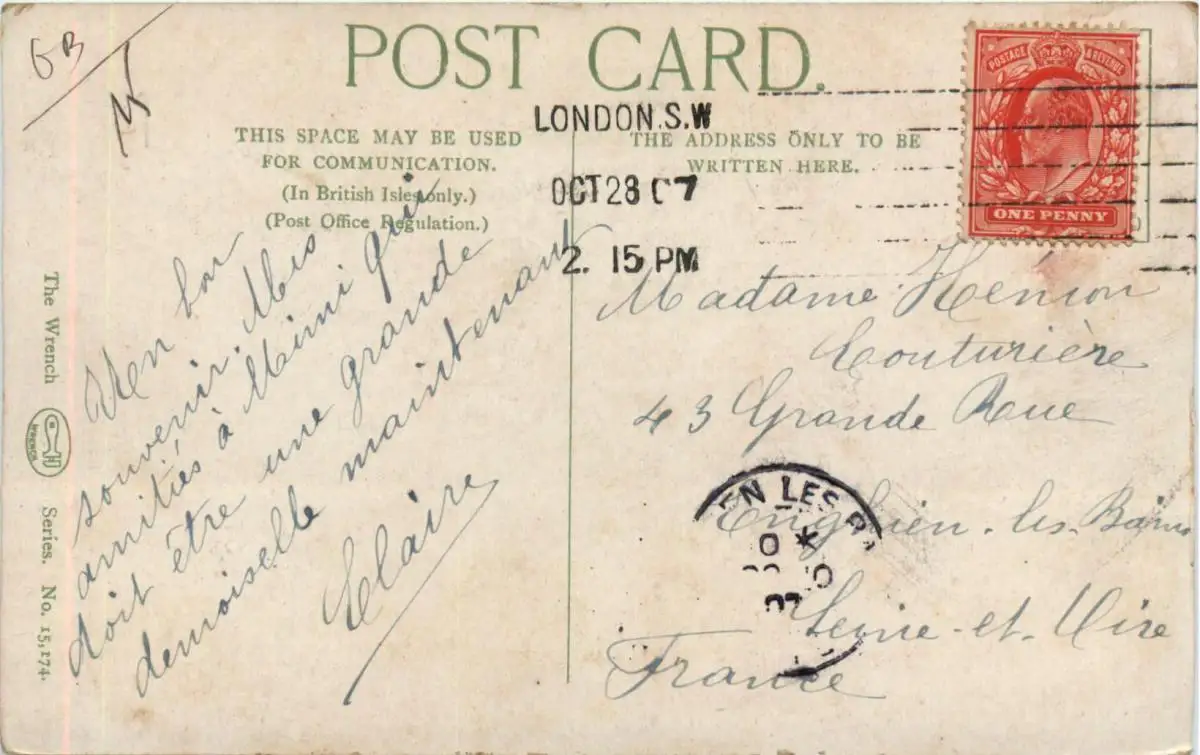 GB
POST CARD.
THIS SPACE MAY BE USED
FOR COMMUNICATION.
(In British Isles only.)
(Post Office Regulation.)
THE ADDRESS ONLY TO BE
WRITTEN HERE.
LONDON.S.W
OCT 28 07
2. 15 PM
POSTAGE & REVENUE
ONE PENNY
The Wrench
WRENCH
Series. No. 15,174.
bon
souvenir. Mes
amitiés à Mimi qui
doit être une grande
demoiselle maintenant
Claire
Madame Henion
Couturière
43 Grande Rue
Enghien-les-Bains
Seine-et-Oise
France
EN LES B
07